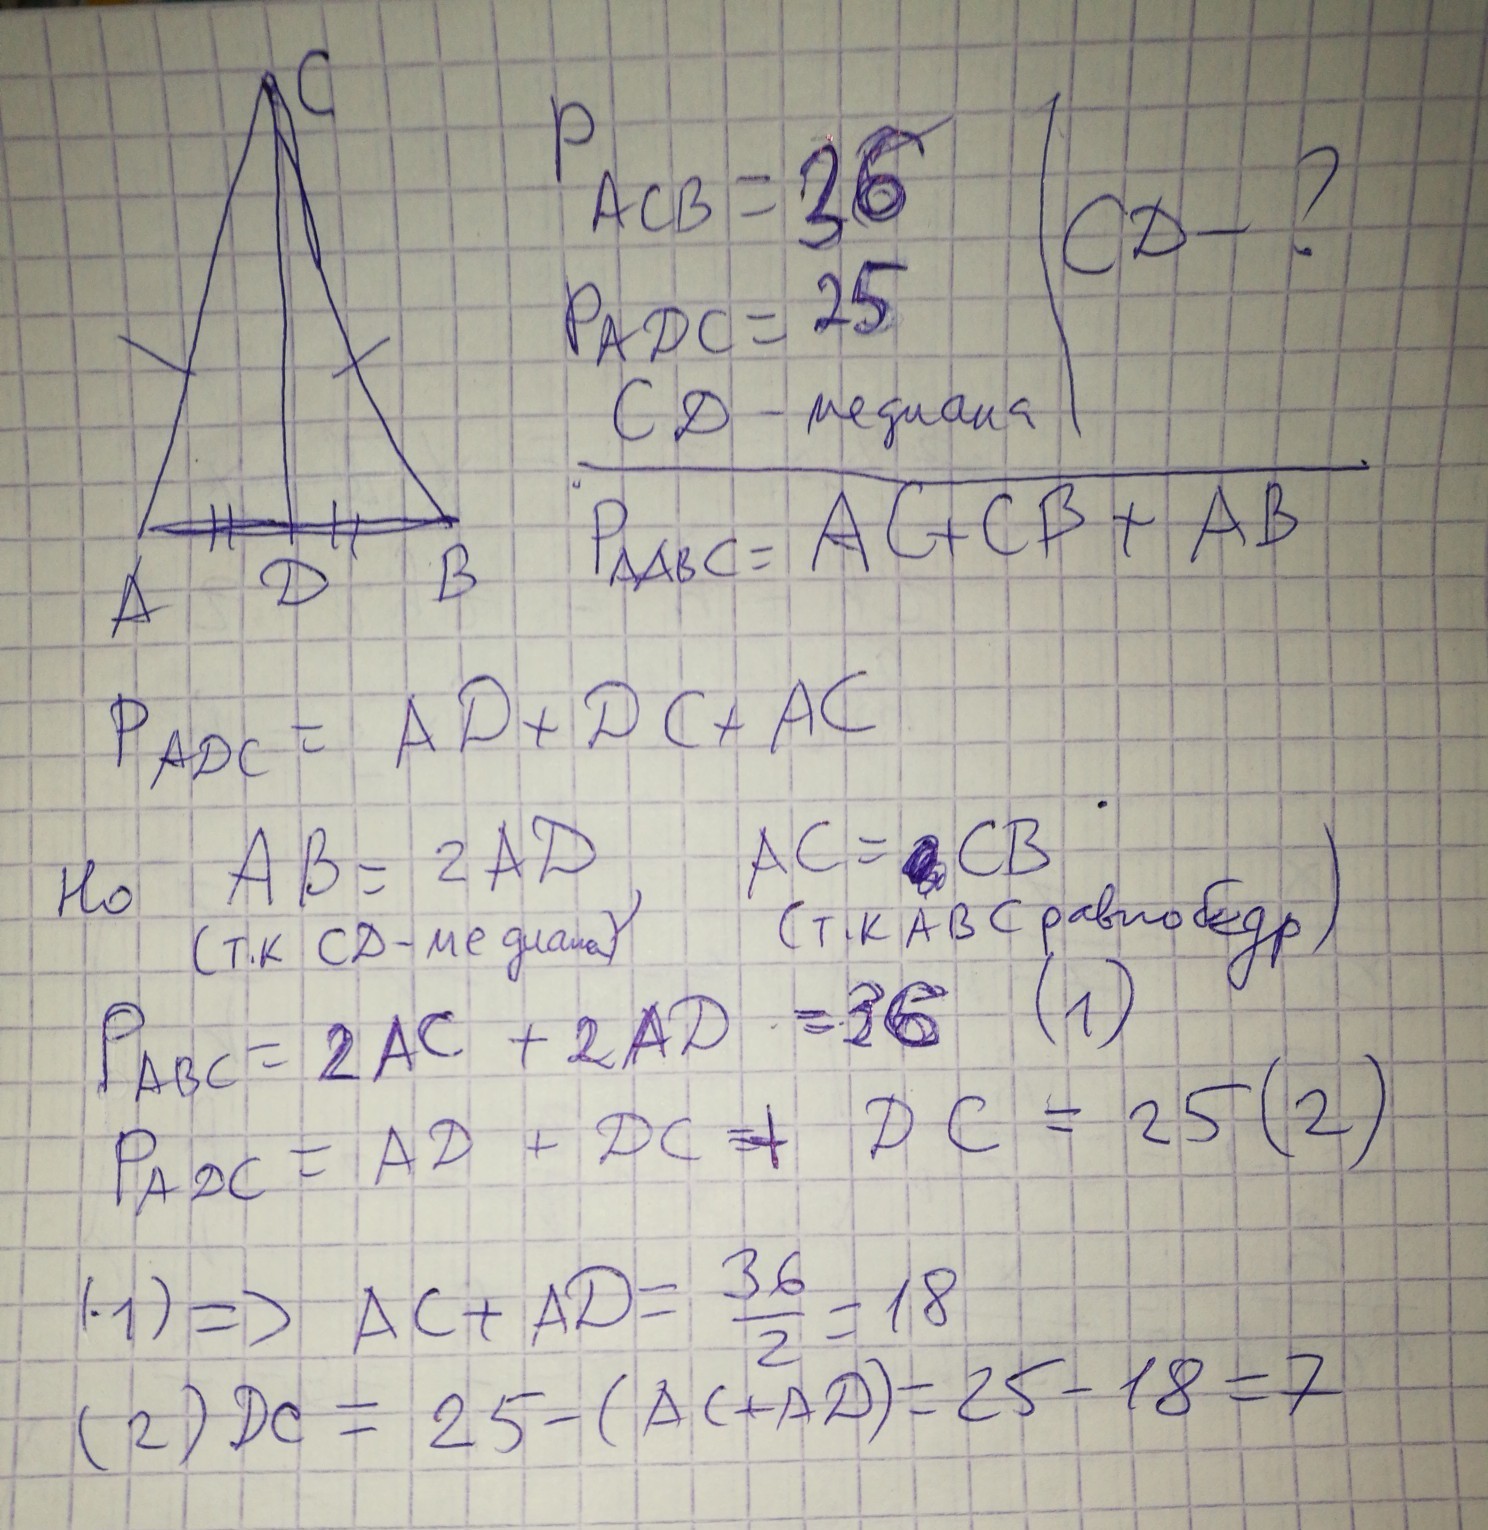 C
A D B
P ACB = 36
P ADC = 25
CD - медиана
CD - ?
P ΔABC = AC + CB + AB
P ADC = AD + DC + AC
Но AB = 2AD AC = CB
(т.к CD - медиана) (т.к ABC равнобедр)
P ABC = 2AC + 2AD = 36 (1)
P ADC = AD + DC + DC = 25 (2)
(1) => AC + AD = 36/2 = 18
(2) DC = 25 - (AC + AD) = 25 - 18 = 7